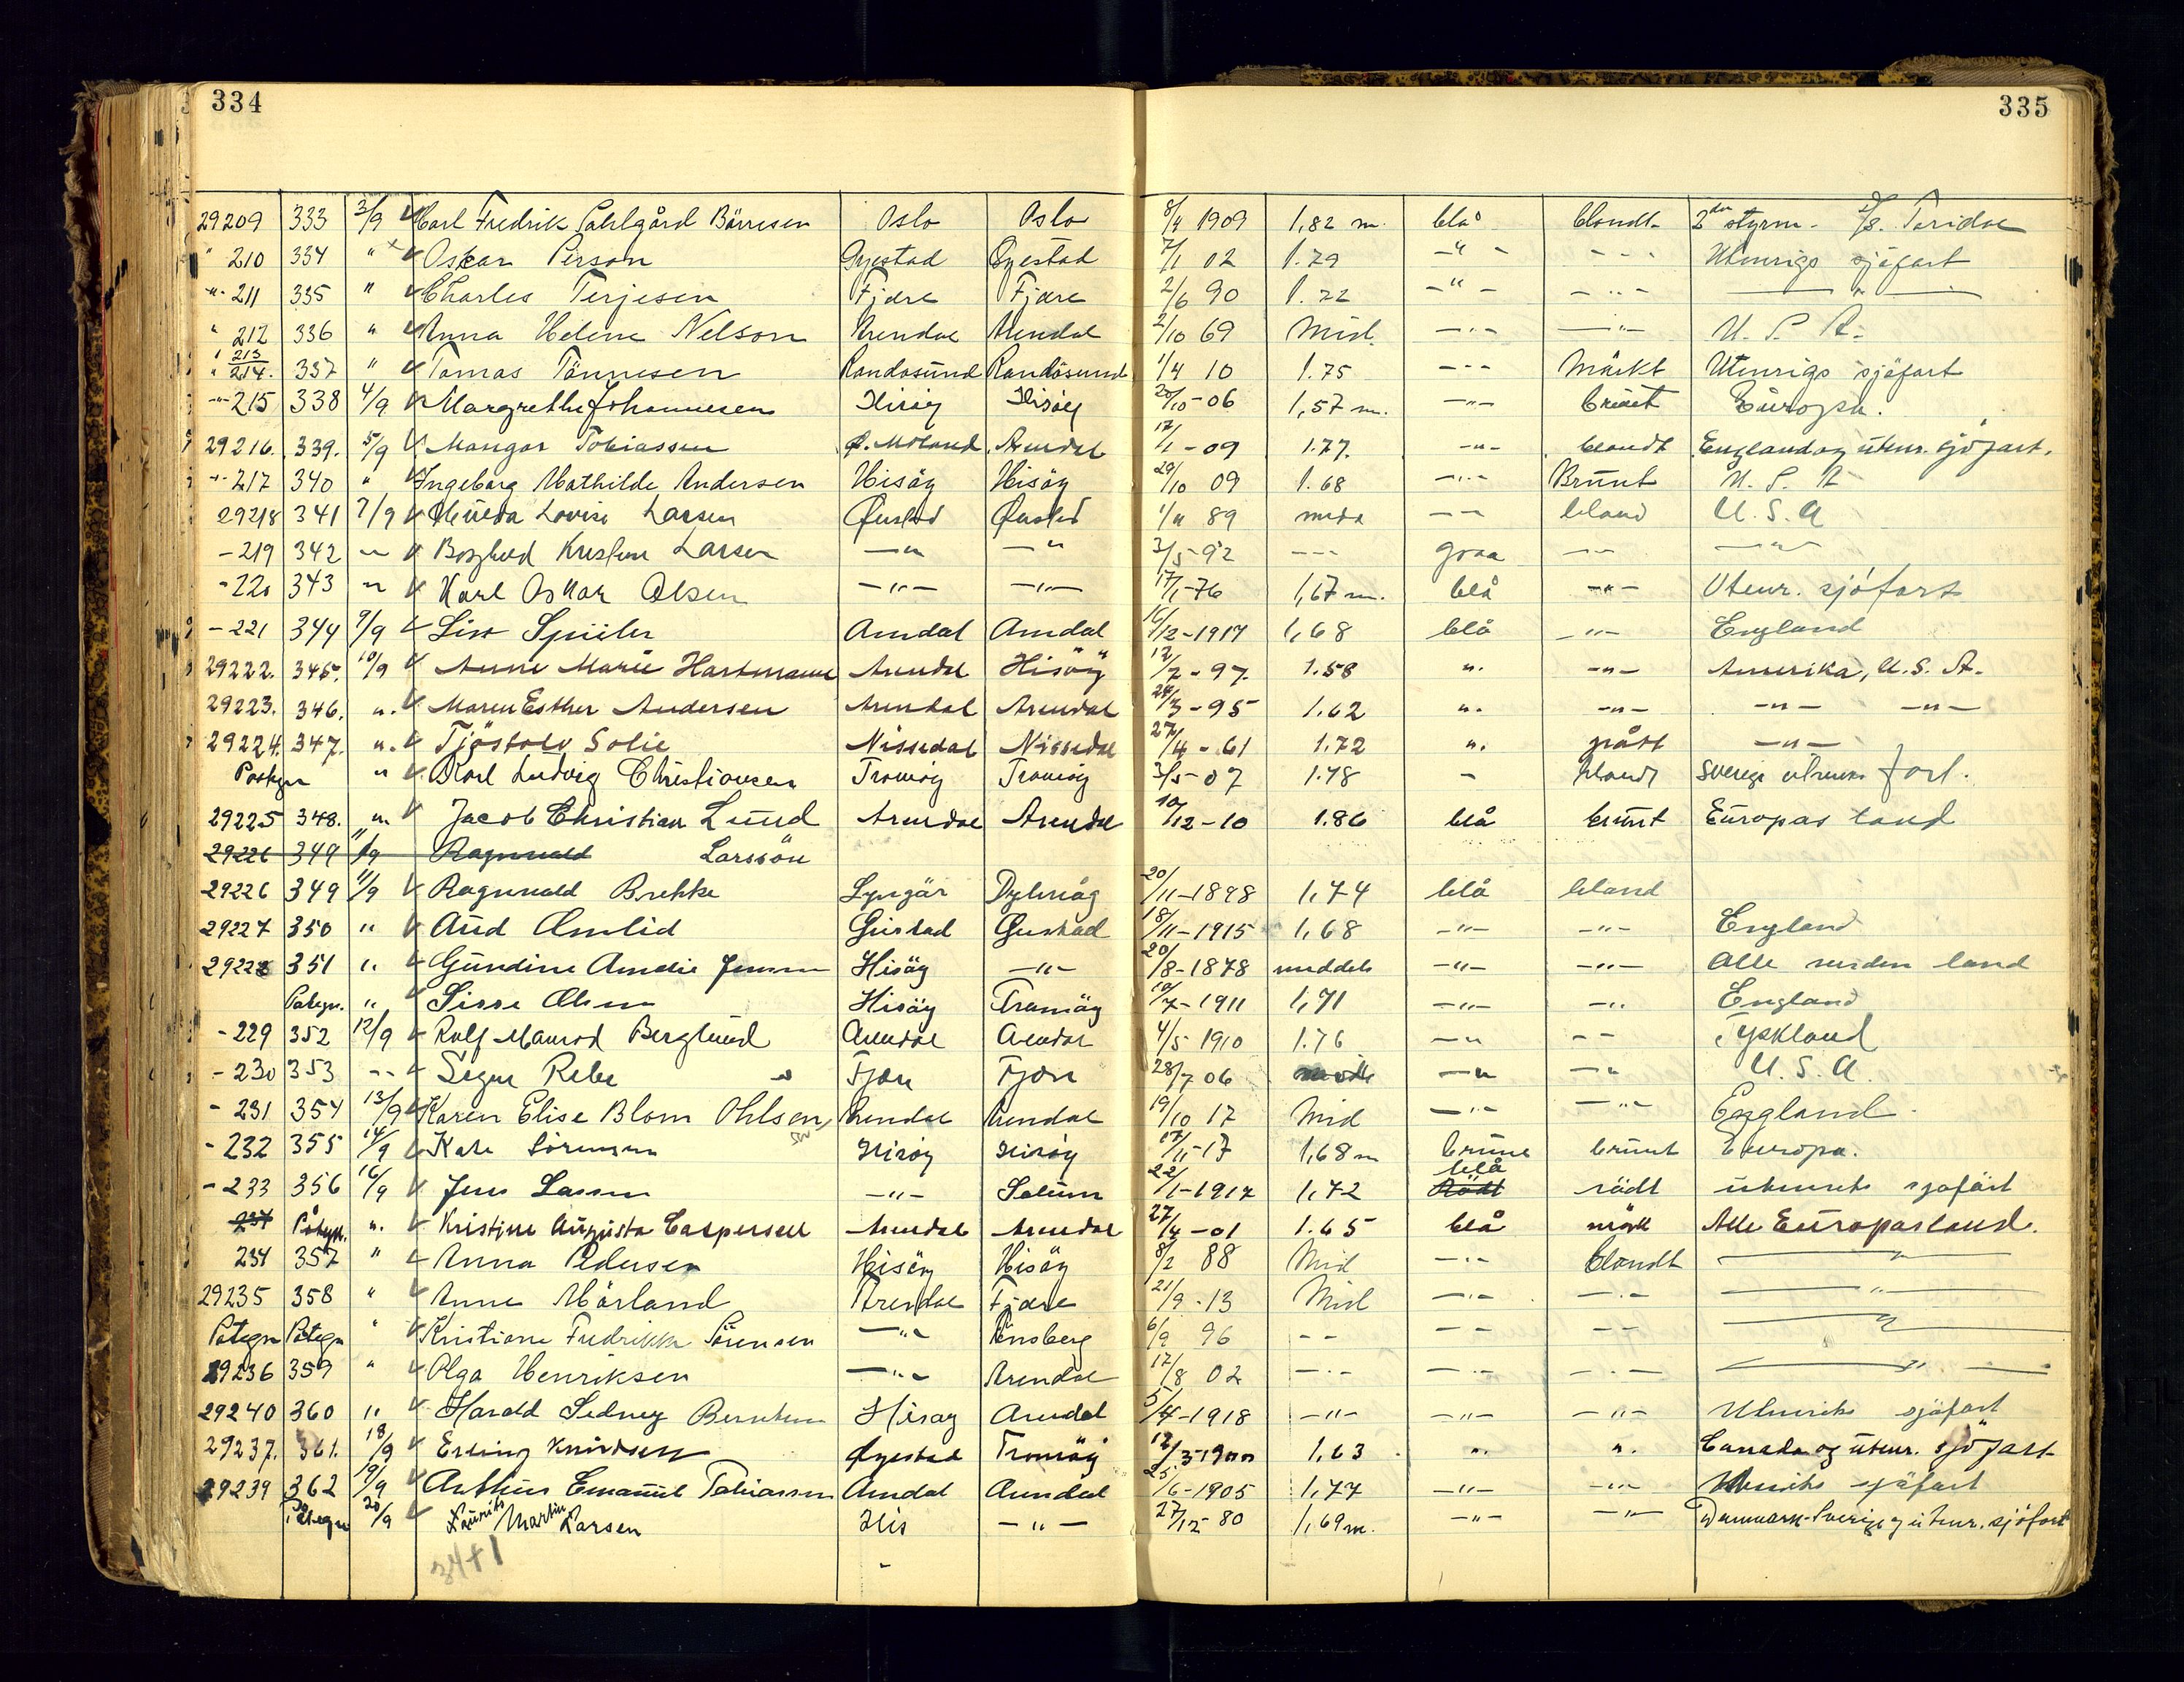 334
335
29209 333 3/9 Carl Fredrik Dahlgård Börresen Oslo Oslo 8/4 1909 1,82 m. blå blondt 2den styrm. T/S.
" 210 334 " Oskar Person Øyestad Øyestad 7/1 02 1.79 -"- -"- Utenrigs sjöfart
-"- 211 335 " Charles Terjesen Fjære Fjære 2/6 90 1.72 -"- -"- -"-
" 212 336 " Anna Helene Nelson Arendal Arendal 2/10 69 Mid. -"- -"- U. S. A.
" 213
" 214. 337 " Tomas Tönnesen Randøsund Randøsund 1/4 10 1.75 -"- Mörkt Utenrigs sjöfart
-"- 215 338 4/9 Margrethe Johannesen Hisöy Hisöy 20/10-06 1,57 m. -"- brunt Europa.
29216. 339. 5/9 Mangor Tobiassen Ø. Moland Arendal 12/1-09 1.77. -"- blondt England og utenr. sjöfart.
-"- 217 340 " Ingeborg Mathilde Andersen Hisöy Hisöy 29/10 09 1.68 -"- Brunt U. S. A
29218 341 7/9 Hulda Lovise Larsen Øiestad Øiestad 1/11 89 midd -"- blond U. S. A
- 219 342 -"- Borghild Kristine Larsen -"- -"- 3/5-92 -"- graa -"- -"-
- 220 343 -"- Karl Oskar Olsen -"- -"- 17/1-76 1,67 m. blå -"- Utenr. sjöfart
- 221 344 9/9 Liss Spiiler Arndal Arndal 16/12-1917 1,68 blå -"- England
29222. 345. 10/9 Anne Marie Hartmann Arendal Hisöy 12/7-97. 1.58 ". -"- Amerika, U. S. A.
29223. 346. ". Maren Esther Andersen Arendal Arendal 24/3-95 1.62 ". -"- -"- -"-
29224. 347. ". Tjöstolv Solie Nissedal Nissedal 27/4-61 1.72 ". grått -"-
Påtegn " Karl Ludvig Christiansen Tromöy Tromöy 3/5-07 1.78 - blondt Sverige utenriks fart.
29225 348. ". Jacob Christian Lund Arendal Arendal 10/12-10 1.86 blå brunt Europas land
29226 349 11/9 Ragnvald Larssön
29226 349 11/9 Ragnvald Brekke Lyngör Dybvåg 20/11-1898 1,74 blå blond
29227 350 " Aud Omlid Øiestad Øiestad 18/11-1915 1,68 -"- -"- England
29228 351 " Gundine Amalie Jensen Hisöy -"- 20/8-1878 middels -"- -"- Alle verden land
Påtegn. " Sisse Olsen Hisöy Tromöy 10/7-1911 1,71 -"- -"- England
- 229 352 12/9 Rolf Manrod Berglund Arendal Arendal 4/5 1910 1.76 -"- - - Tyskland
- 230 353 -"- Signe Fjære Fjære 28/7 06 -"- -"- U. S. A.
- 231 354 13/9 Karen Elise Blom Ohlsen, Arendal Arendal 19/10 17 Mid -"- -"- England.
- 232 355 14/9 Kate Sörensen Hisöy Hisöy 17/11-17 1,68 m brune brunt Europa.
- 233 356 16/9 Jens Lassen -"- Solum 22/1-1917 1,72 blå Rödt rödt utenriks sjöfart
234 Påtegn. ". Kristine Augusta Caspersen Arendal Arendal 27/4-01 1.65 blå mörk Alle Europas land.
234 357 " Anna Pedersen Hisöy Hisöy 8/2 88 Mid -"- blondt -"-
29235 358 " Anne Mörland Arendal Fjære 21/9-13 Mid -"- -"- -"-
Påtegn Påtegn " Kristiane Fredrikke Sörensen -"- Tönsberg 6/9 96 - - - - - - -"-
29236 359 " Olga Henriksen -"- Arendal 12/8 02 -"- -"- -"- -"-
29240 360 " Harald Sedney Berntsen Hisøy Arendal 5/4-1918 -"- -"- -"- Utenriks sjöfart
29237. 361. 18/9 Erling Knudsen Øyestad Tromöy 12/3-1900 1,63 ". ". Canada og utenr. sjöfart
29239 362 19/9 Arthur Emanuel Tobiassen Arndal Arendal 25/6-1905 1,77 -"- -"- Utenriks sjöfart
Påtegn 20/9 Martin Larsen His -"- 27/12-80 1,69 m. -"- -"- Danmark-Sverige og utenr. sjöfart
34+1